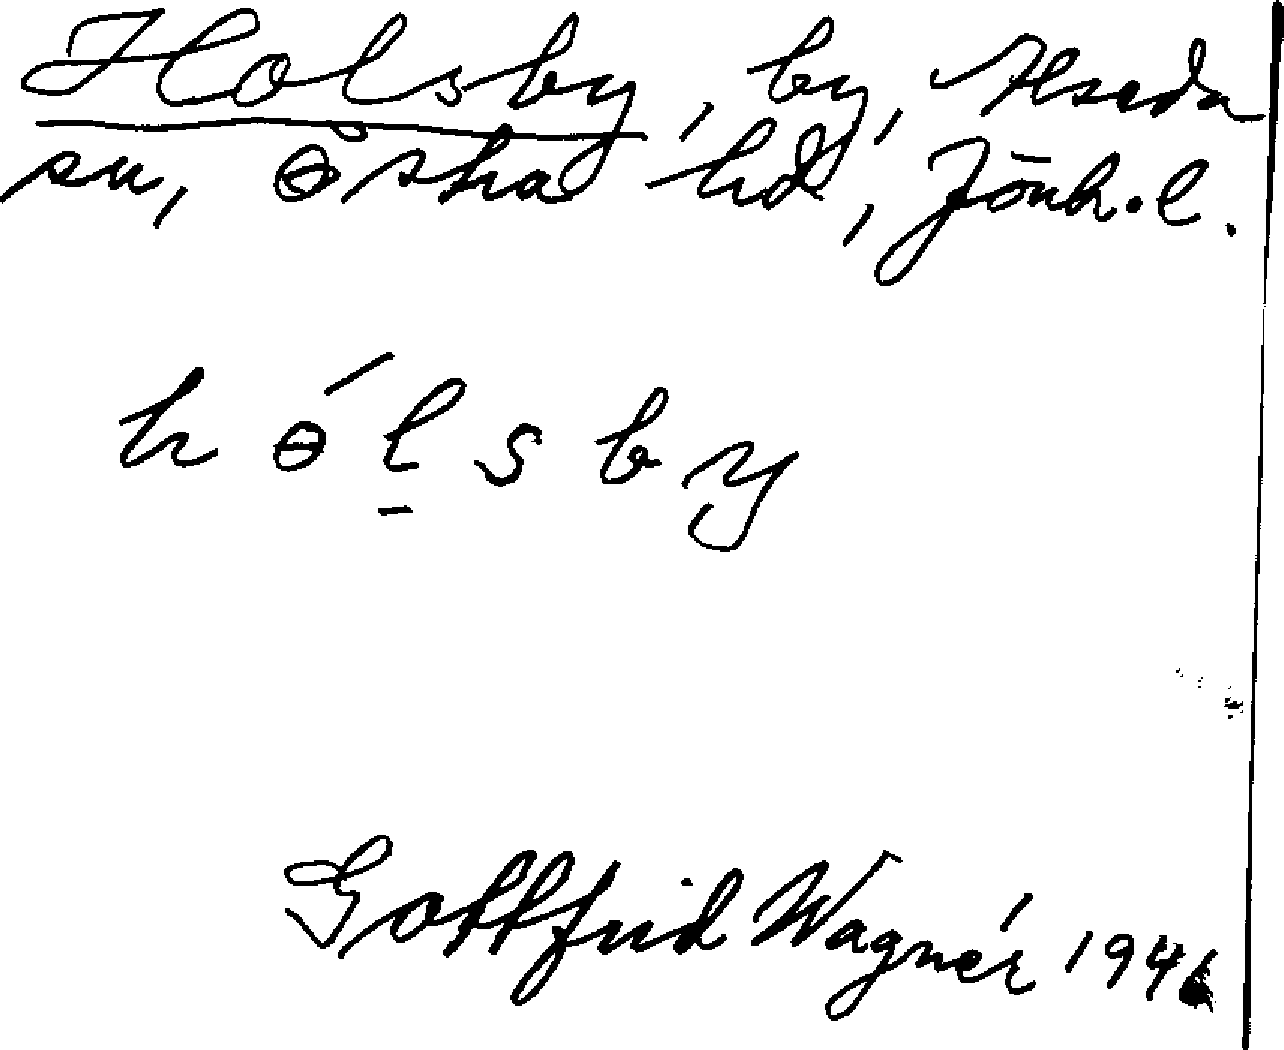 Holsby, by, Alseda
sn, Östra hd, Jönk.l.
hɵ́l̠sby
Gottfrid Wagnér 1946